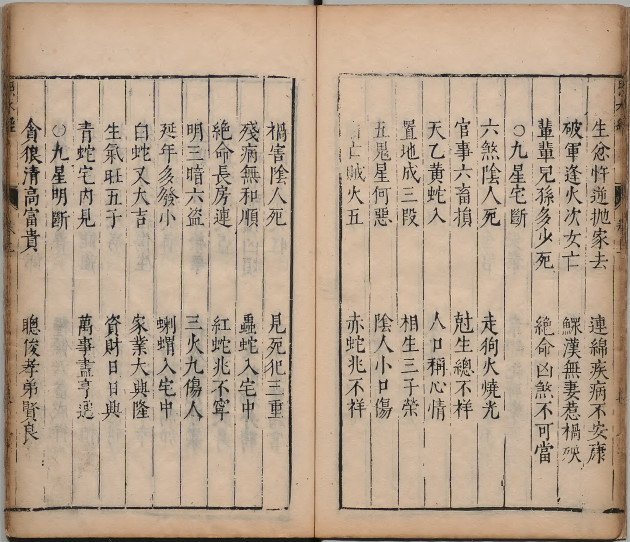 生忿忤逆抛家去 連綿疾病不安康
破軍逢火次女亡 鰥漢無妻惹禍殃
輩輩兒孫多少死 絕命凶煞不可當
○九星宅斷
六煞陰人死 走狗火燒光
官事六畜損 尅生總不祥
天乙黃蛇入 人口稱心情
置地成三段 相生三子榮
五鬼星何惡 陰人小口傷
亡賊火五 赤蛇兆不祥
禍害陰人死 見死犯三重
殘病無和順 蟲蛇入宅中
絕命長房連 紅蛇兆不寧
明三暗六盜 三火九傷人
延年多發小 蝌蝟入宅中
白蛇又大吉 家業大興隆
生氣旺五子 資財日日興
青蛇宅內見 萬事盡亨通
○九星明斷
貪狼清高富貴 聰俊孝弟賢良